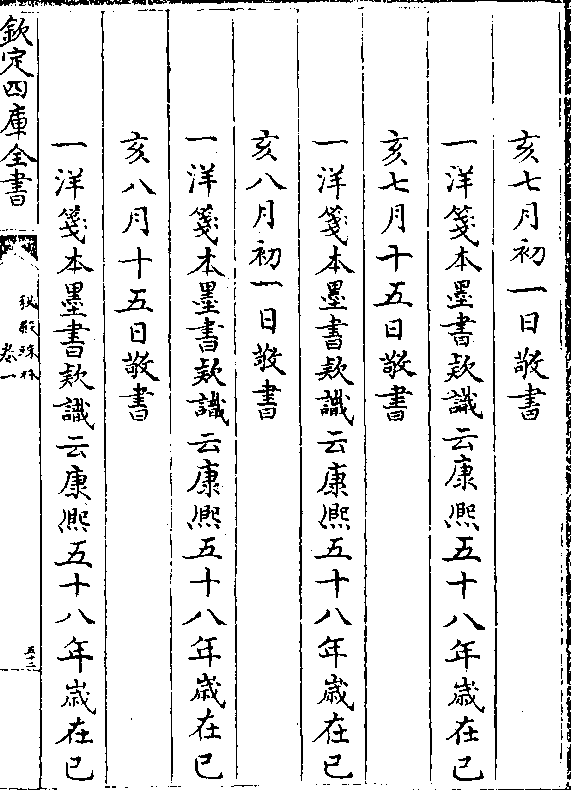 亥七月初一日敬書
一洋箋本墨書款識云康熙五十八年歲在己
亥七月十五日敬書
一洋箋本墨書款識云康熙五十八年歲在己
亥八月初一日敬書
一洋箋本墨書款識云康熙五十八年歲在己
亥八月十五日敬書
一洋箋本墨書款識云康熙五十八年歲在己
欽定四庫全書
秘殿珠林
卷一
五十三